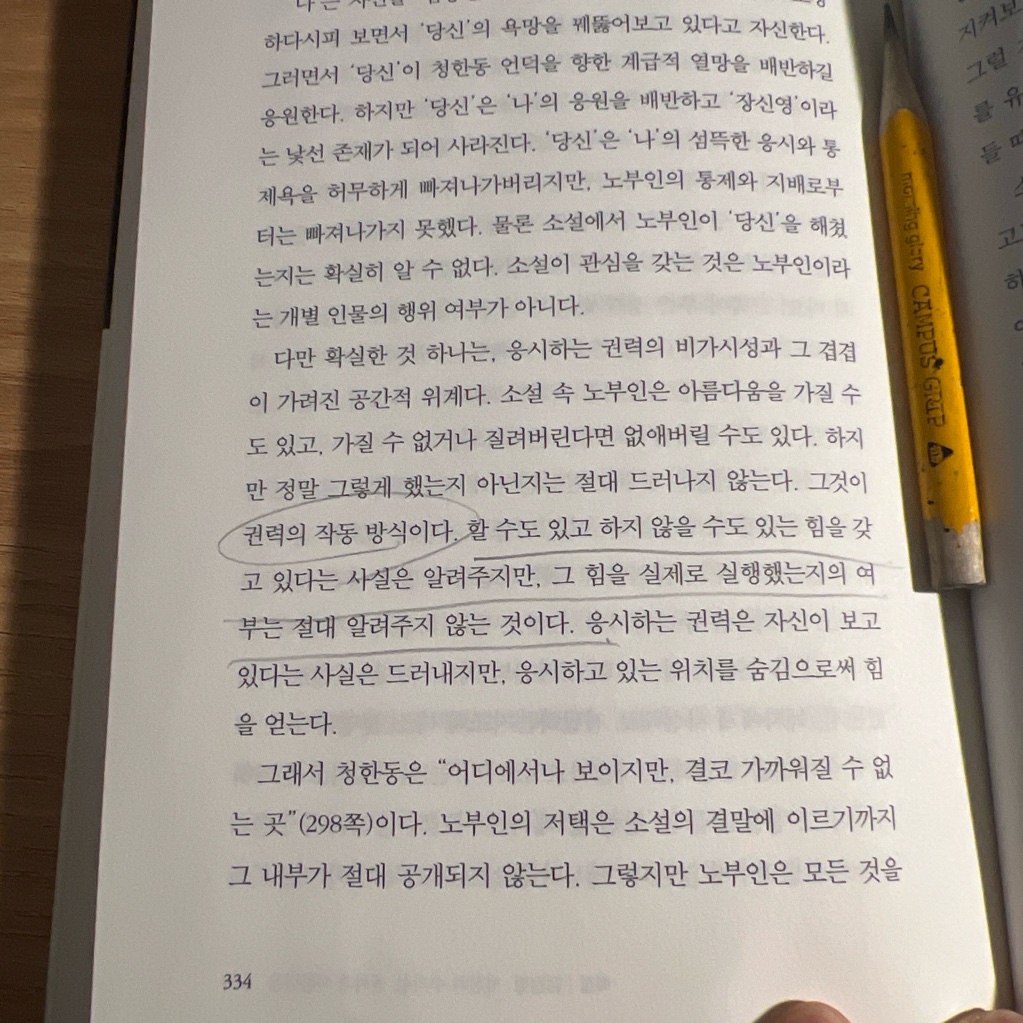 하다시피 보면서 ‘당신’의 욕망을 꿰뚫어보고 있다고 자신한다.
그러면서 ‘당신’이 청한동 언덕을 향한 계급적 열망을 배반하길
응원한다. 하지만 ‘당신’은 ‘나’의 응원을 배반하고 ‘장신영’이라
는 낯선 존재가 되어 사라진다. ‘당신’은 ‘나’의 섬뜩한 응시와 통
제욕을 허무하게 빠져나가버리지만, 노부인의 통제와 지배로부
터는 빠져나가지 못했다. 물론 소설에서 노부인이 ‘당신’을 해쳤
는지는 확실히 알 수 없다. 소설이 관심을 갖는 것은 노부인이라
는 개별 인물의 행위 여부가 아니다.
다만 확실한 것 하나는, 응시하는 권력의 비가시성과 그 겹겹
이 가려진 공간적 위계다. 소설 속 노부인은 아름다움을 가질 수
도 있고, 가질 수 없거나 질려버린다면 없애버릴 수도 있다. 하지
만 정말 그렇게 했는지 아닌지는 절대 드러나지 않는다. 그것이
권력의 작동 방식이다. 할 수도 있고 하지 않을 수도 있는 힘을 갖
고 있다는 사실은 알려주지만, 그 힘을 실제로 실행했는지의 여
부는 절대 알려주지 않는 것이다. 응시하는 권력은 자신이 보고
있다는 사실은 드러내지만, 응시하고 있는 위치를 숨김으로써 힘
을 얻는다.
그래서 청한동은 “어디에서나 보이지만, 결코 가까워질 수 없
는 곳”(298쪽)이다. 노부인의 저택은 소설의 결말에 이르기까지
그 내부가 절대 공개되지 않는다. 그렇지만 노부인은 모든 것을
334
morning glory CAMPUS GRIP
지켜보
그럴
를 유
고
하